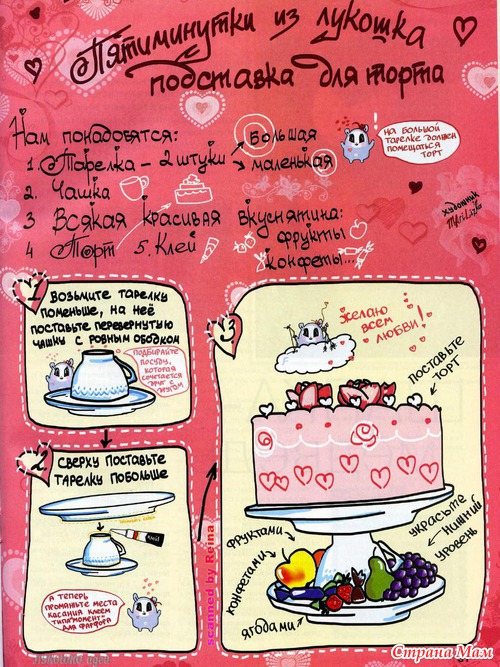 Пятиминутки из лукошка
подставка для торта
Нам понадобятся:
1. Тарелка – 2 штуки
Большая
маленькая
2. Чашка
3 Всякая красивая вкуснятина:
фрукты
конфеты...
4 Торт 5. Клей
на большой
тарелке должен
поместиться
торт
художник
1
Возьмите тарелку
поменьше, на неё
поставьте перевернутую
чашку с ровным ободком
Подбирайте
посуду,
которая
сочетается
друг с
другом
2
Сверху поставьте
тарелку побольше
клей
А теперь
промажьте места
касания клеем
типа "момент"
для фарфора
3
Желаю
всем
любви!
поставьте
торт
украсьте
нижний
уровень
фруктами
конфетами
ягодами
scanned by Reina
Страна Мам